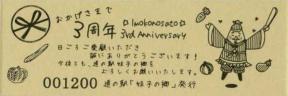 おかげさまで
3周年
☆Imokonosato☆
3rd Anniversary
日ごろご愛顧いただき
誠にありがとうございます!
今後とも、道の駅「妹子の郷」を
よろしくお願いいたします。
001200
道の駅「妹子の郷」発行